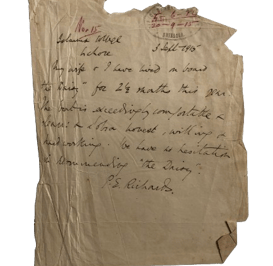 Nov 15
20-9-15
SRINAGAR
Islamia College
Lahore
3 Sept 1915
My wife & I have lived on board
the "Daisy" for 2½ months this year.
The boat is exceedingly comfortable &
clean: & Lobra honest, willing &
hardworking. We have no hesitation
in recommending "the Daisy".
P. E. Richards.